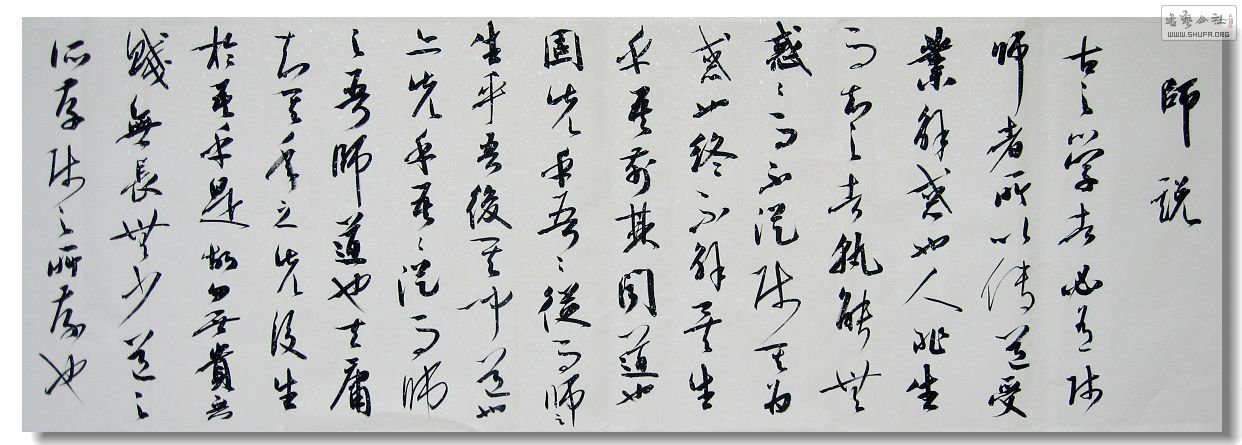 師說
古之學者必有师
師者所以傳道受
業解惑也人非生
而知之者孰能無
惑々而不從师其為
惑也終不解矣生
乎吾前其聞道也
固先乎吾々從而師之
生乎吾後其聞道也
亦先乎吾々從而師
之吾師道也夫庸
知其年之先後生
於吾乎是故無貴無
賤無長無少道之
所存师之所存也
書藝公社
WWW.SHUFA.ORG